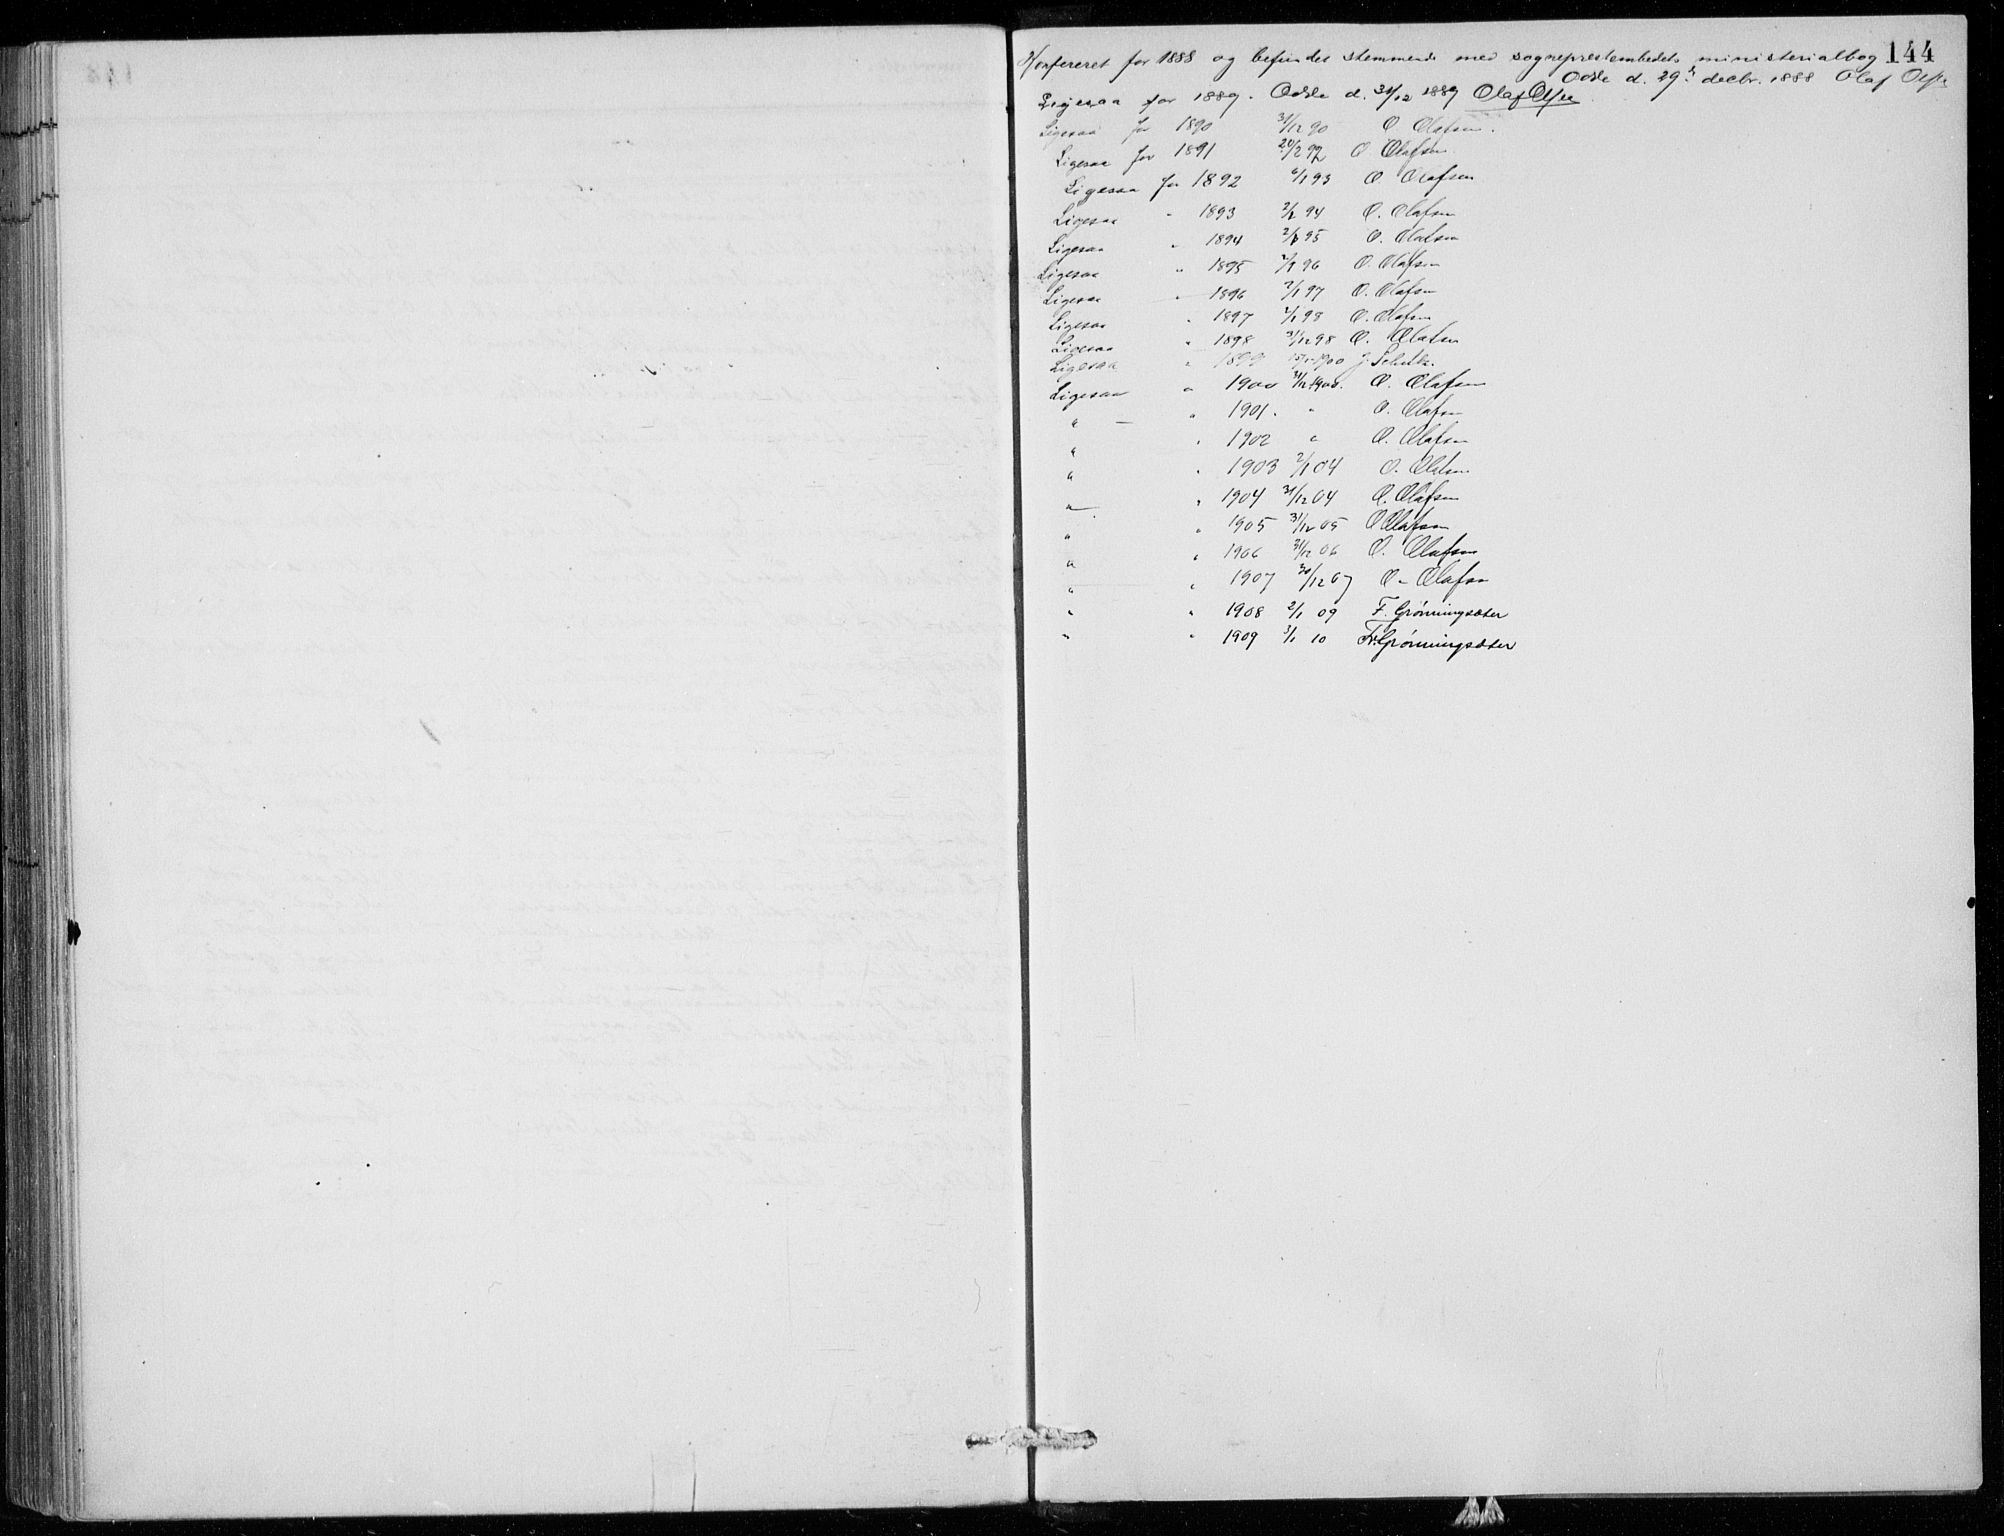 144
Konfereret for 1888 og befindes stemmende med sogneprestembedets ministerialbog
Odda d. 29de decbr. 1888 Olaf Olafsen
Ligesaa for 1889. Odda d. 31/12 1889 Olaf Olafsen
Ligesaa for 1890 31/12 90 O. Olafsen.
Ligesaa for 1891 20/2 92 O. Olafsen.
Ligesaa for 1892 6/1 93 O. Olafsen
Ligesaa " 1893 2/1 94 O. Olafsen
Ligesaa " 1894 2/1 95 O. Olafsen
Ligesaa " 1895 2/1 96 O. Olafsen
Ligesaa " 1896 2/1 97 O. Olafsen
Ligesaa " 1897 2/1 98 O. Olafsen
Ligesaa " 1898 31/12 98 O. Olafsen
Ligesaa " 1899 15/1 1900
Ligesaa " 1900 31/12 1900. O. Olafsen
" — " 1901. " O. Olafsen
" " 1902 " O. Olafsen
" " 1903 2/1 04 O. Olafsen
" " 1904 31/12 04 O. Olafsen
" " 1905 31/12 05 O Olafsen
" " 1906 31/12 06 O. Olafsen
" " 1907 30/12 07 O. Olafsen
" " 1908 2/1 09 F. Grönningsæter
" " 1909 3/1 10 Fr. Grönningsæter